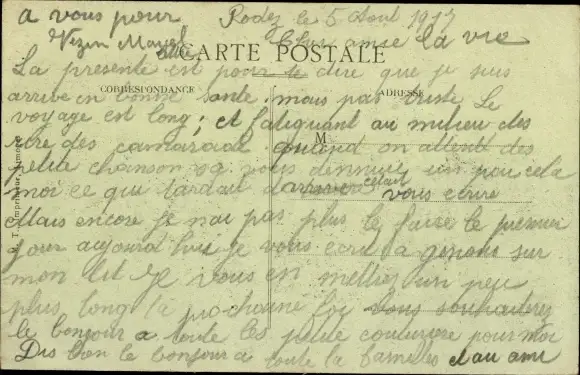 a vous pour Rodez le 5 Aout 1917
Vezin Marcel Cher amie la vie
CARTE POSTALE
La presente est pour te dire que je suis
CORRESPONDANCE ADRESSE
arrive en bonne sante. mais pas triste Le
voyage est long; et fatiguant au milieu des
M
des camarade quand on attent des
petite chanson sa vous dennuie un peu cela
moi ce qui tardait d'arriver cetait vous ecrire
Mais encore je nai pas plus le faire le premier
jour aujourd hui je vous ecrit a genoux sur
mon lit Je vous en mettrez un peu
plus long la prochaine foi vous souhaiterez
le bonjour a toute les petite couturiere pour moi
Dis bien le bonjour a toute la familles et au ami
Imprimeur, Limoges